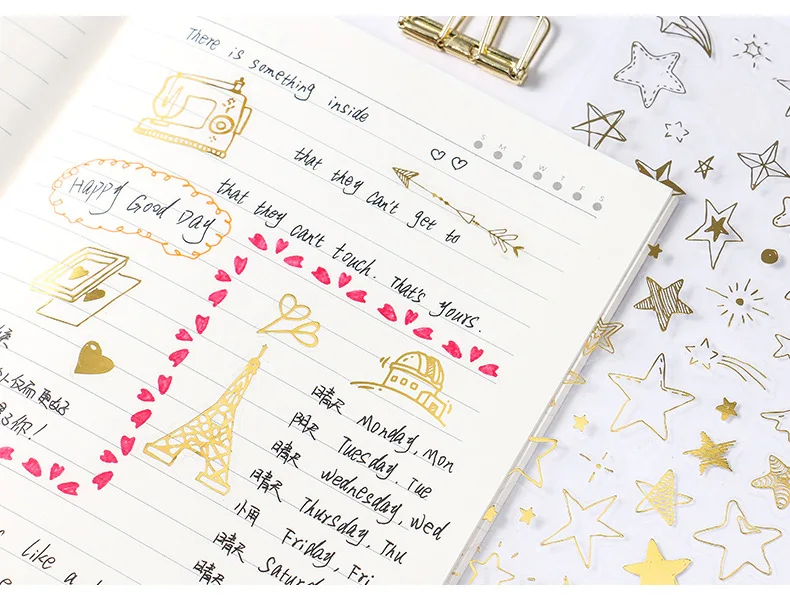 There is something inside
S M T W T F S
that they can't get to
Happy Good Day
that they can't touch. That's yours.
了你!
晴天 Monday, Mon
阴天 Tuesday, Tue
晴天 wednesday, wed
晴天 Thursday, Thu
小雨 Friday, Fri
晴天 Saturd
晴天
like a